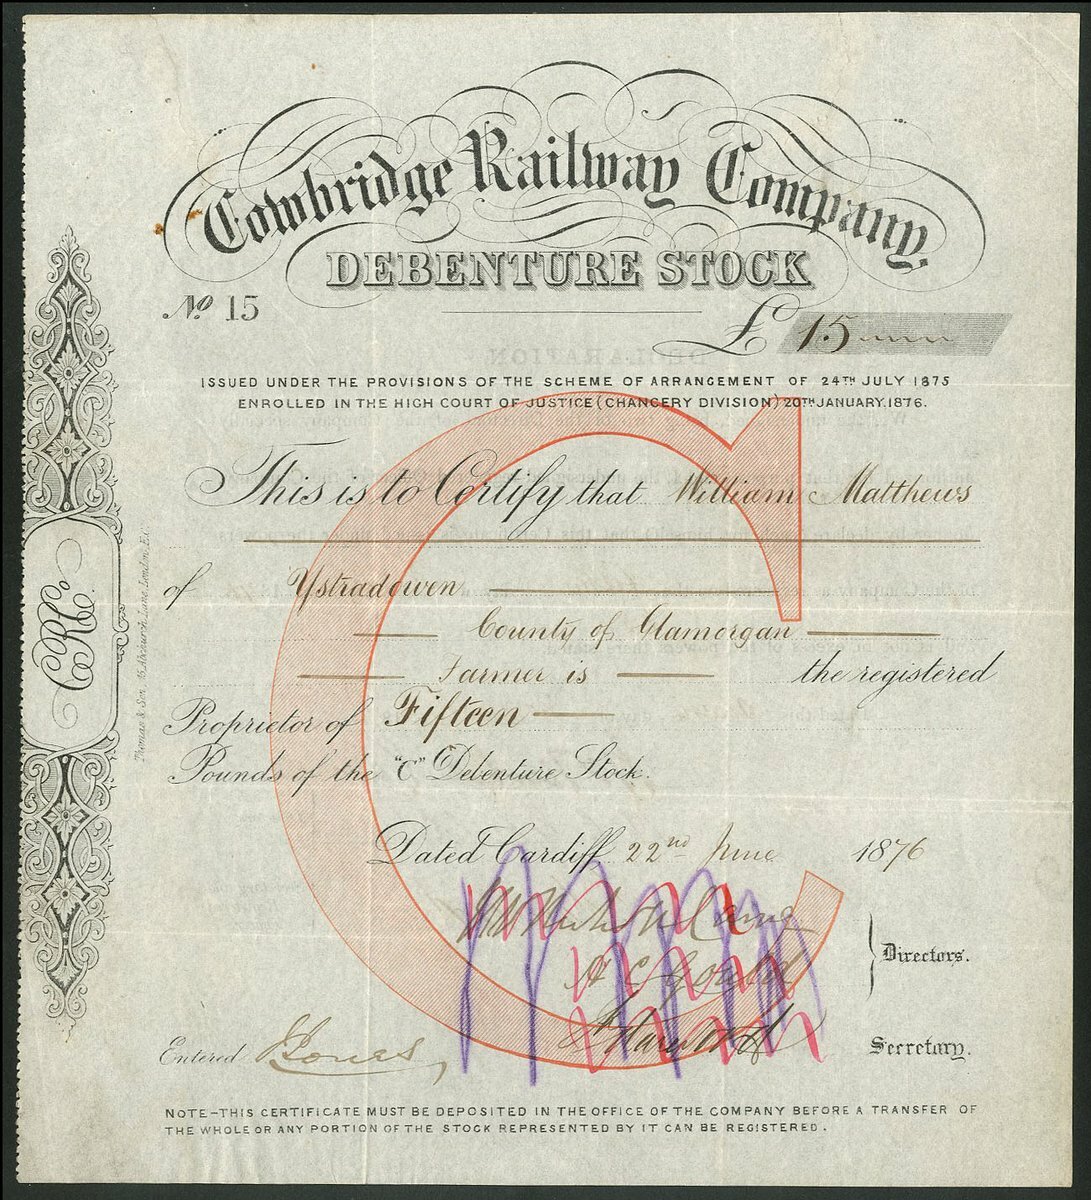 Cowbridge Railway Company.
DEBENTURE STOCK
No. 15
£ 15
ISSUED UNDER THE PROVISIONS OF THE SCHEME OF ARRANGEMENT OF 24TH JULY 1875
ENROLLED IN THE HIGH COURT OF JUSTICE (CHANCERY DIVISION) 20TH JANUARY. 1876.
This is to Certify that William Matthews
of Ystradowen
County of Glamorgan
Farmer is the registered
Proprietor of Fifteen
Pounds of the "C" Debenture Stock.
Dated Cardiff 22nd June 1876
A C Gould
Directors.
Entered
Secretary.
NOTE-THIS CERTIFICATE MUST BE DEPOSITED IN THE OFFICE OF THE COMPANY BEFORE A TRANSFER OF
THE WHOLE OR ANY PORTION OF THE STOCK REPRESENTED BY IT CAN BE REGISTERED.
C
Thomas & Son, 15, Abchurch Lane, London, E.C.